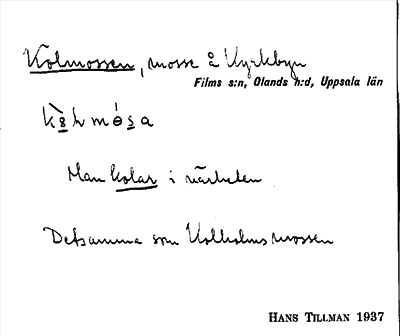 Kolmossen, mosse å Kyrkbyn
Films s:n, Olands h:d, Uppsala län
Man kolar i närheten
Detsamma som Kolholmsmossen
HANS TILLMAN 1937